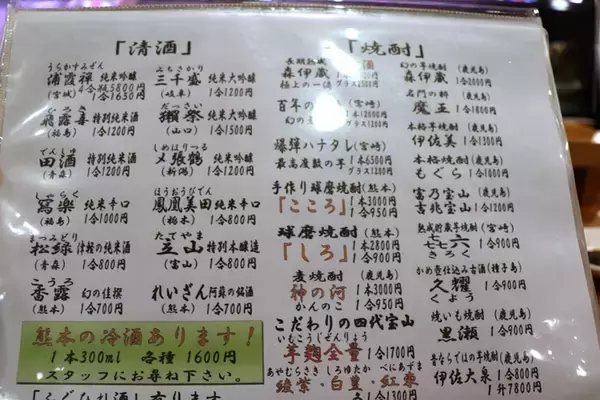 「清酒」
うらかすみぜん
浦霞禅 純米吟醸
4合瓶5800円
(宮城) 1合1650円
ひろき
飛露喜 特別純米酒
(福島) 1合1200円
でんしゅ
田酒 特別純米酒
(青森) 1合1200円
しゃらく
寫楽 純米辛口
(福島) 1合1000円
まつみどり
松緑 津軽の純米酒
(青森) 1合800円
こうろ
香露 幻の佳撰
(熊本) 1合700円
みちさかり
三千盛 純米大吟醸
(岐阜) 1合1200円
だっさい
獺祭 純米大吟醸
(山口) 1合1500円
しめはりつる
〆張鶴 純米吟醸
(新潟) 1合1200円
ほうおうびでん
鳳凰美田 純米辛口
(栃木) 1合800円
たてやま
立山 特別本醸造
(富山) 1合800円
れいざん 阿蘇の銘酒
(熊本) 1合700円
熊本の冷酒あります!
1本300ml 各種 1600円
スタッフにお尋ね下さい。
「ふぐひれ酒」有ります
「焼酎」
長期熟成
森伊蔵
極上の一滴 グラス
百年の (宮崎)
グラス1200円
爆弾ハナタレ(宮崎)
最高度数の芋 1本6500円
グラス1100円
手作り球磨焼酎(熊本)
「こころ」 1本3000円
1合950円
球磨焼酎 (熊本)
「しろ」 1本2800円
1合900円
麦焼酎 (鹿児島)
神の河 1本3000円
かんのこ 1合950円
こだわりの四代宝山
いもこうじぜんりょう
芋麹全量 1合1700円
あやむらさき しろゆたか べにあずま
綾紫・白豊・紅東
各1合1300円
幻の芋焼酎(鹿児島)
森伊蔵 1合2000円
名門の粋 (鹿児島)
魔王 1合1800円
本格芋焼酎(鹿児島)
伊佐美 1合1300円
本格焼酎(鹿児島)
もぐら 1合1100円
富乃宝山 (鹿児島)
吉兆宝山 1合1200円
熟成貯蔵芋焼酎(宮崎)
㐂六 1合900円
きろく
かめ壺仕込み古酒(種子島)
久耀 1合900円
くよう
焼いも焼酎(鹿児島)
黒瀬 1合900円
昔ならではの芋焼酎(鹿児島)
伊佐大泉 1合800円
1升7800円